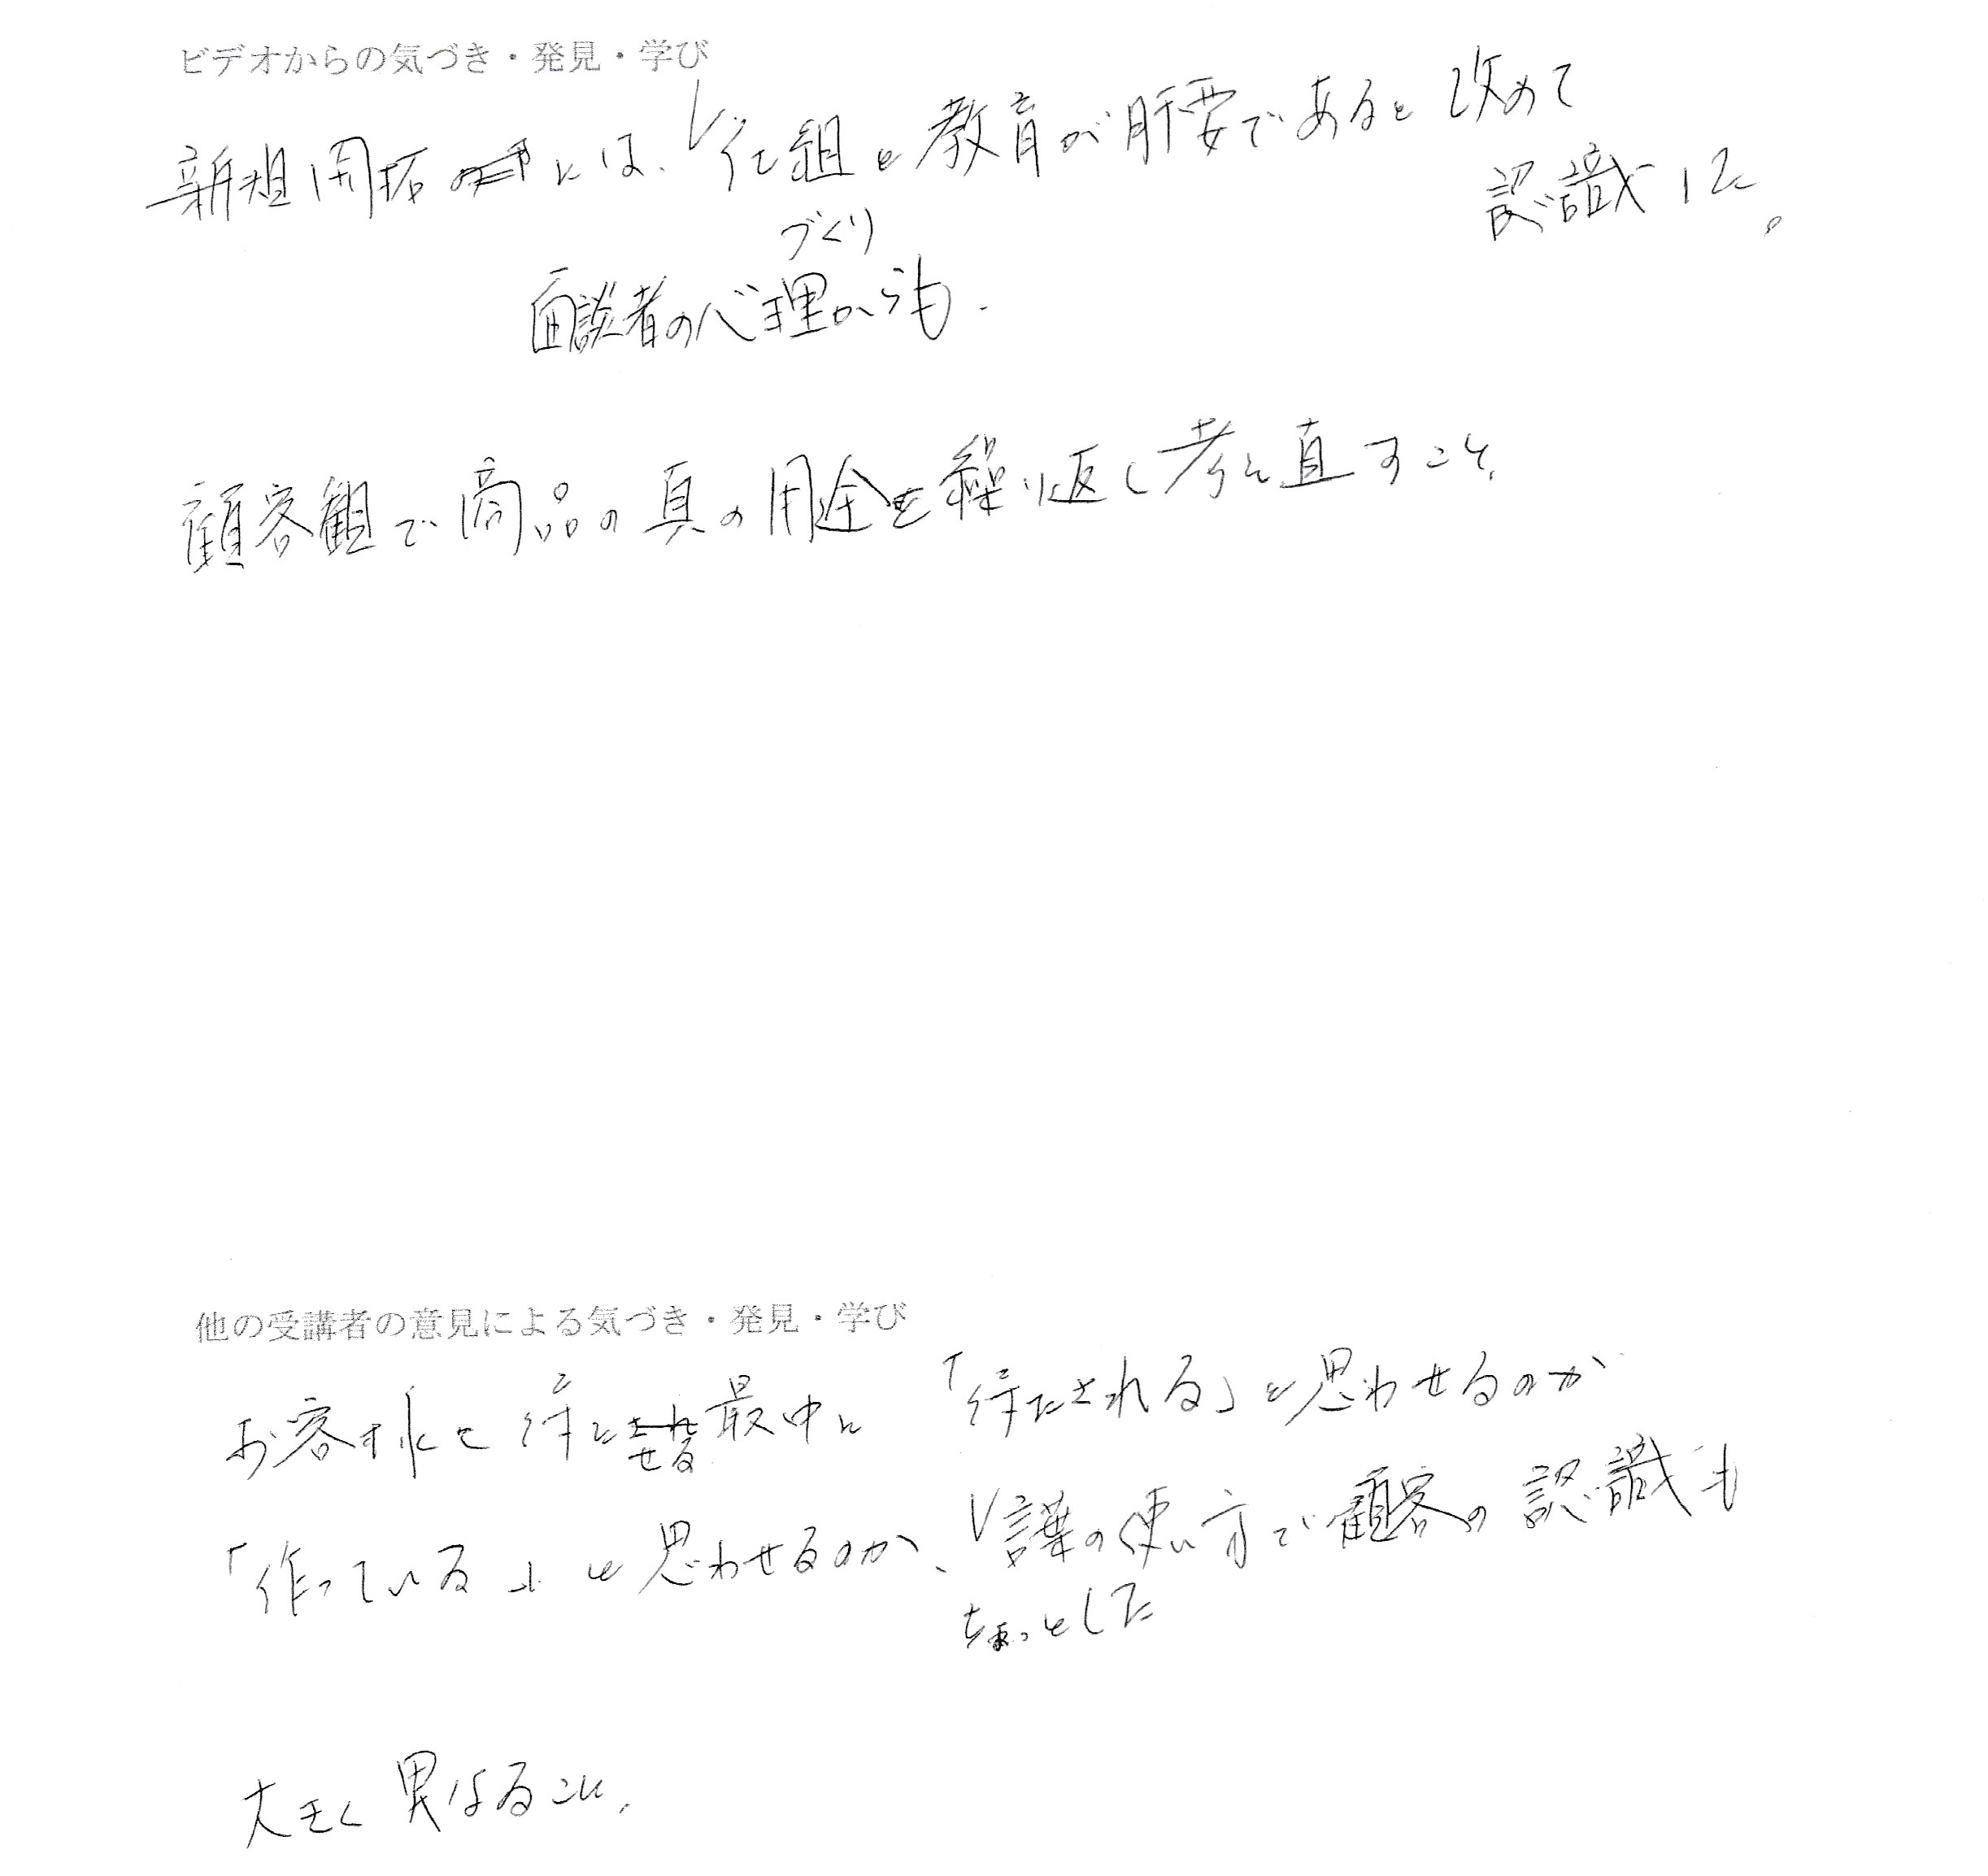 ビデオからの気づき・発見・学び
新規開拓には、仕組と教育が肝要であると改めて
認識した。
づくり
面談者の心理からも、
顧客観で商品の真の用途を繰り返し考え直すこと、
他の受講者の意見による気づき・発見・学び
お客様を待たせる最中に「待たされる」と思わせるのか
「作っている」と思わせるのか、言葉の使い方で顧客の認識も
ちょっとした
大きく異なること、